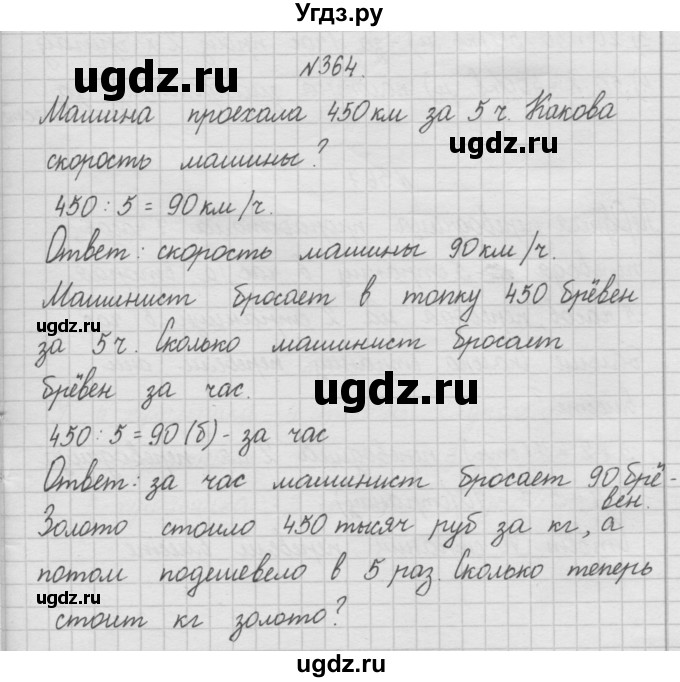 Угдз.ру
ugdz.ru
№364.
Машина проехала 450 км за 5 ч. Какова
скорость машины?
450 : 5 = 90 км/ч.
Ответ: скорость машины 90 км/ч.
Машинист бросает в топку 450 брёвен
ugdz.ru
за 5 ч. Сколько машинист бросает
брёвен за час.
ugdz.ru
450 : 5 = 90 (б) - за час
Ответ: за час машинист бросает 90 брё-
вен.
Золото стоило 450 тысяч руб за кг, а
потом подешевело в 5 раз. Сколько теперь
ugdz.ru
стоит кг золото?
ugdz.ru